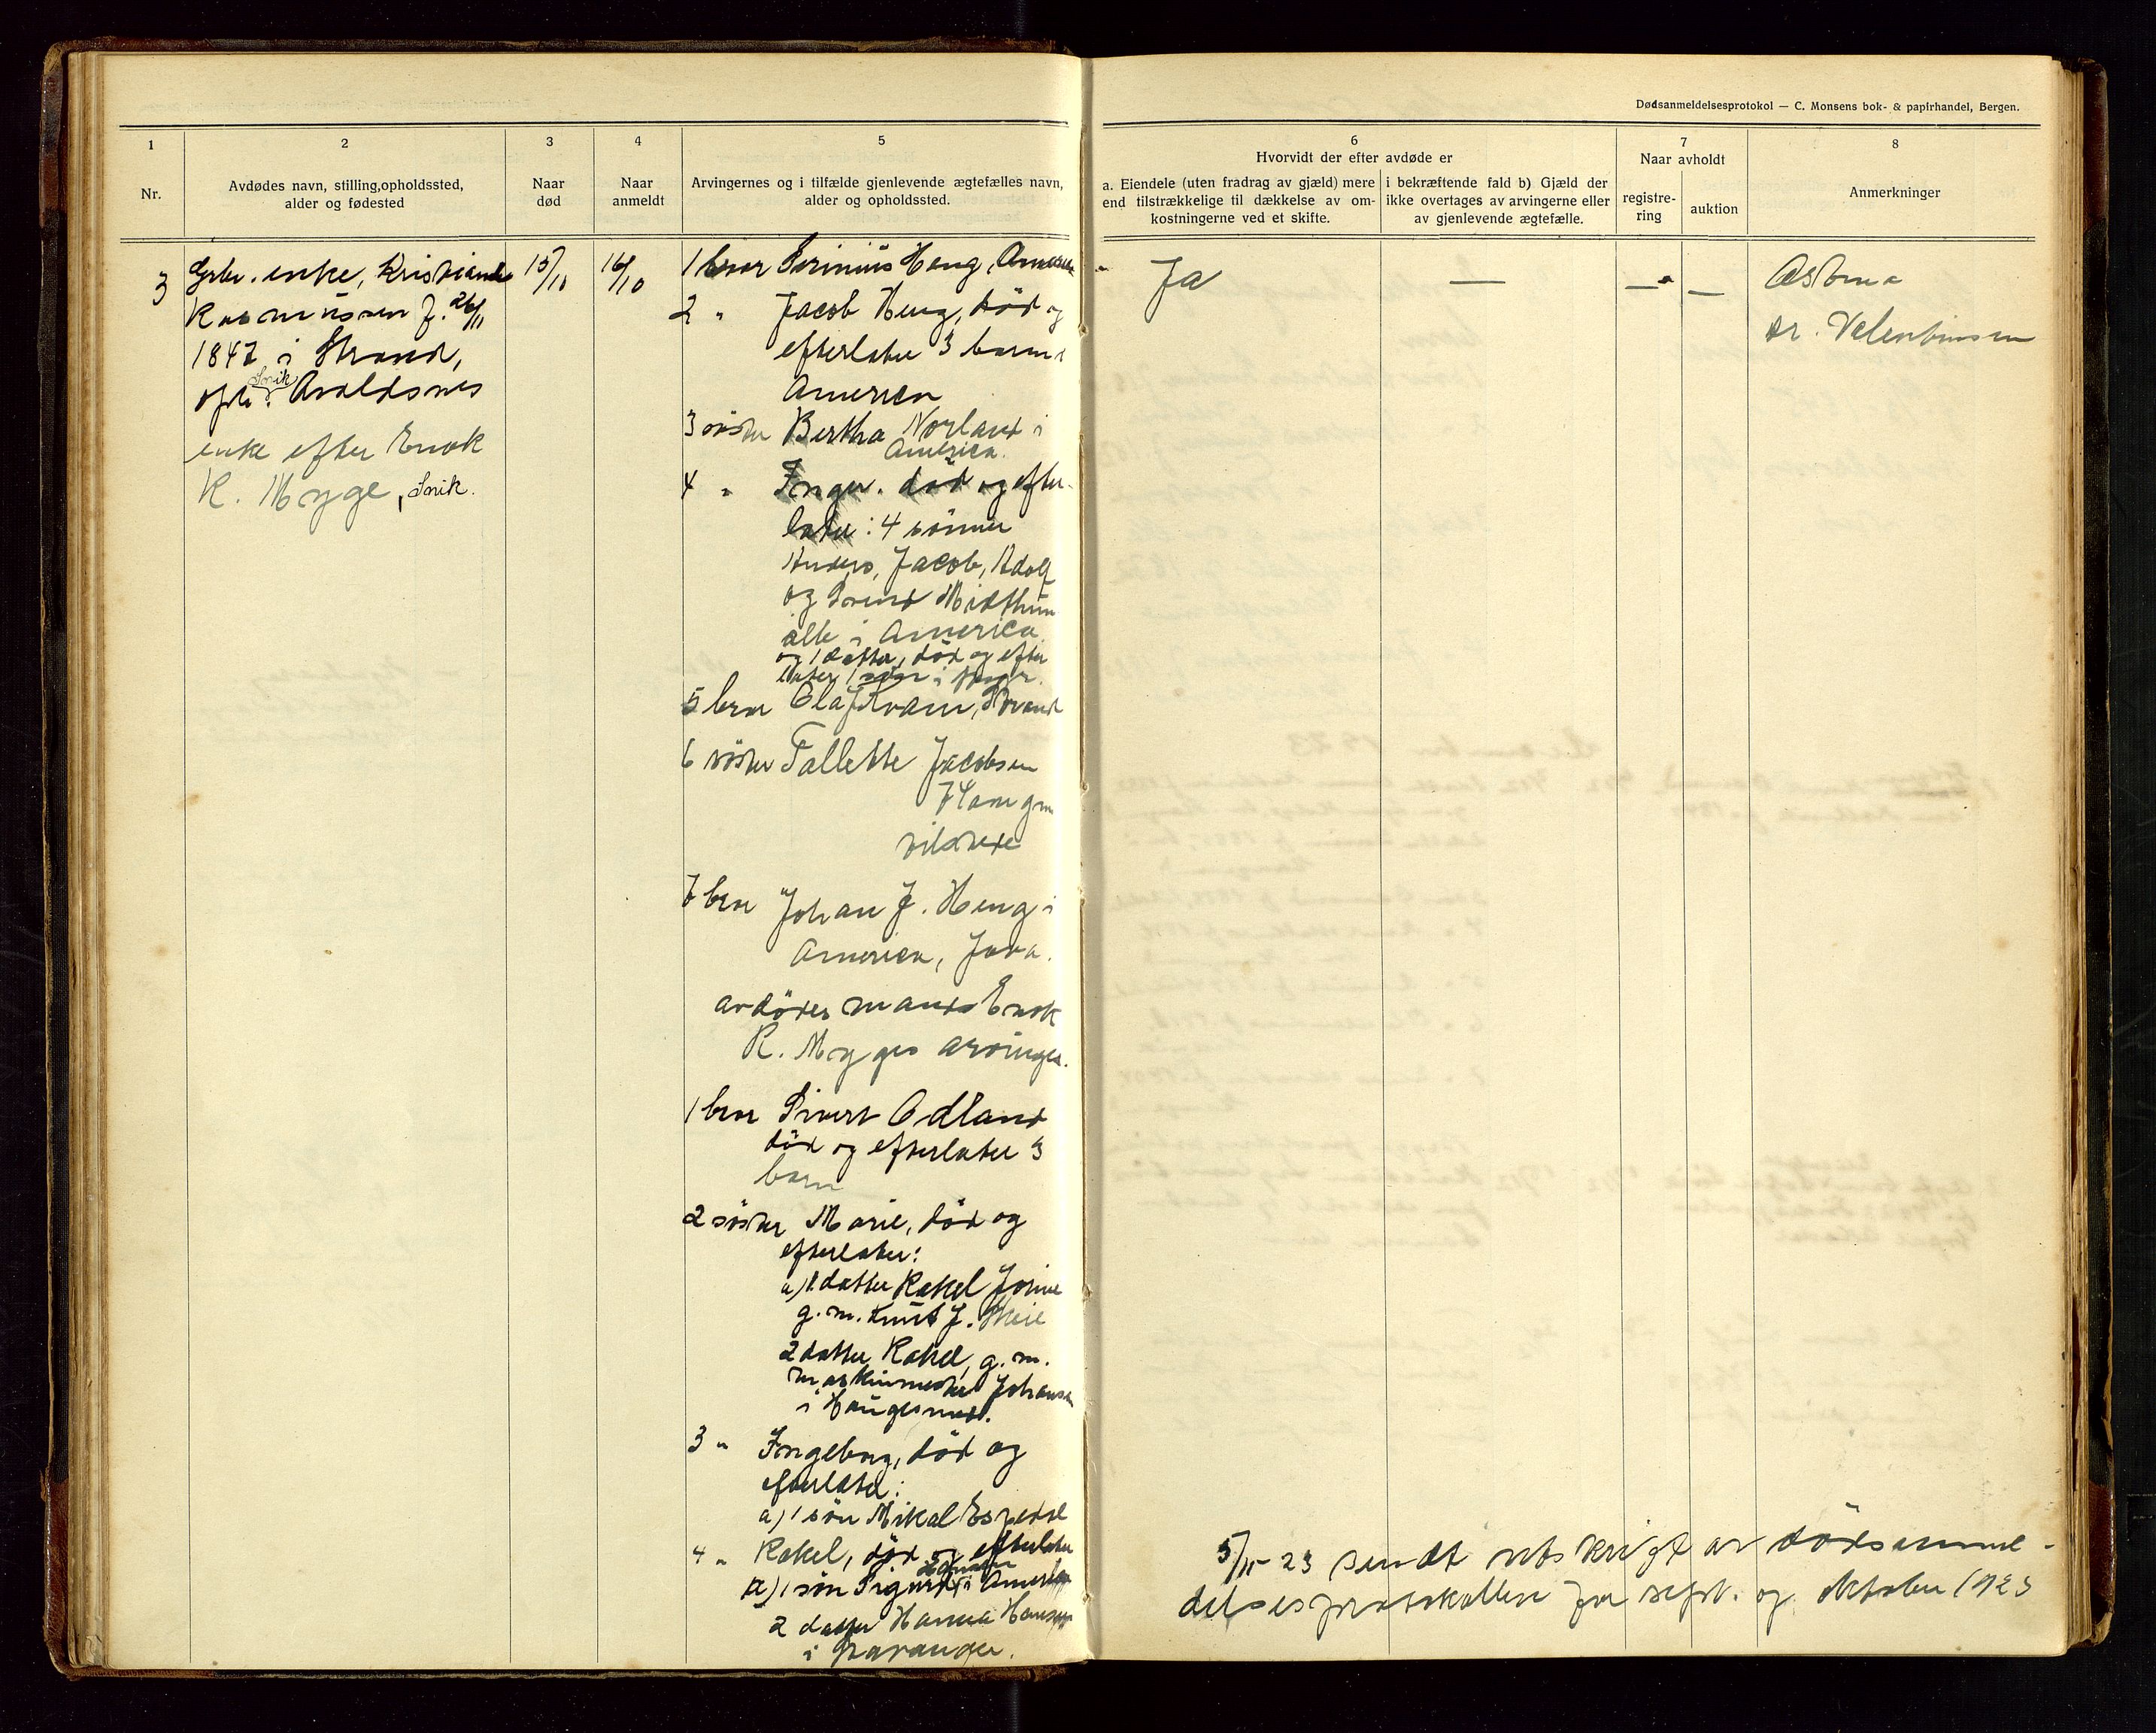 Dødsanmeldelsesprotokol — C. Monsens bok- & papirhandel, Bergen.
1
2
3
4
5
6
7
8
Nr.
Avdødes navn, stilling, opholdssted,
alder og fødested
Naar
død
Naar
anmeldt
Arvingernes og i tilfælde gjenlevende ægtefælles navn,
alder og opholdssted.
Hvorvidt der efter avdøde er
a. Eiendele (uten fradrag av gjæld) mere
end tilstrækkelige til dækkelse av om-
kostningerne ved et skifte.
i bekræftende fald b) Gjæld der
ikke overtages av arvingerne eller
av gjenlevende ægtefælle.
Naar avholdt
registre-
ring
auktion
Anmerkninger
3
Grbr. enke, Kristiande
Rasmussen f. 26/11
1847 i Strand,
Snik
Avaldsnes
enke efter Enok
R. Mygge, Snik.
15/10
16/10
1 bror Serinius Heng, America
2 " Jacob Heng, död og
efterlater 3 barn i
America
3 söster Bertha Norland i
America.
4 " Inger. död og efter-
later: 4 sönner
Anders, Jacob, Adolf
og Svend Midthun
alle i America
og 1 datter, död og efter
later 1
5 bror Olaf Kvam, Strand
6 söster Tallette Jacobsen
7 bror Johan J. Heng i
America, Java.
avdödes mands Enok
R. Mygges arvinger.
1 bror Sivert Odland
död og efterlater 3
barn
2 söster Marie, död og
efterlater:
a) 1 datter Rakel Jorine
g. m. Knut J. Skeie
2 datter Rakel, g. m.
maskinmester Johansen
i Haugesund.
3 " Ingeborg, död og
efterlater:
a) 1 sön Mikal Espedal
4 " Rakel, död og efterlater
a) 1 sön Sigurd i America
2 datter Hanna Hansen
i Stavanger.
Ja
—
—
—
Astma
Dr. Valentinsen
5/11-23 sendt utskrift av dödsanmel-
delsesprotokollen for sept. og oktober 1923